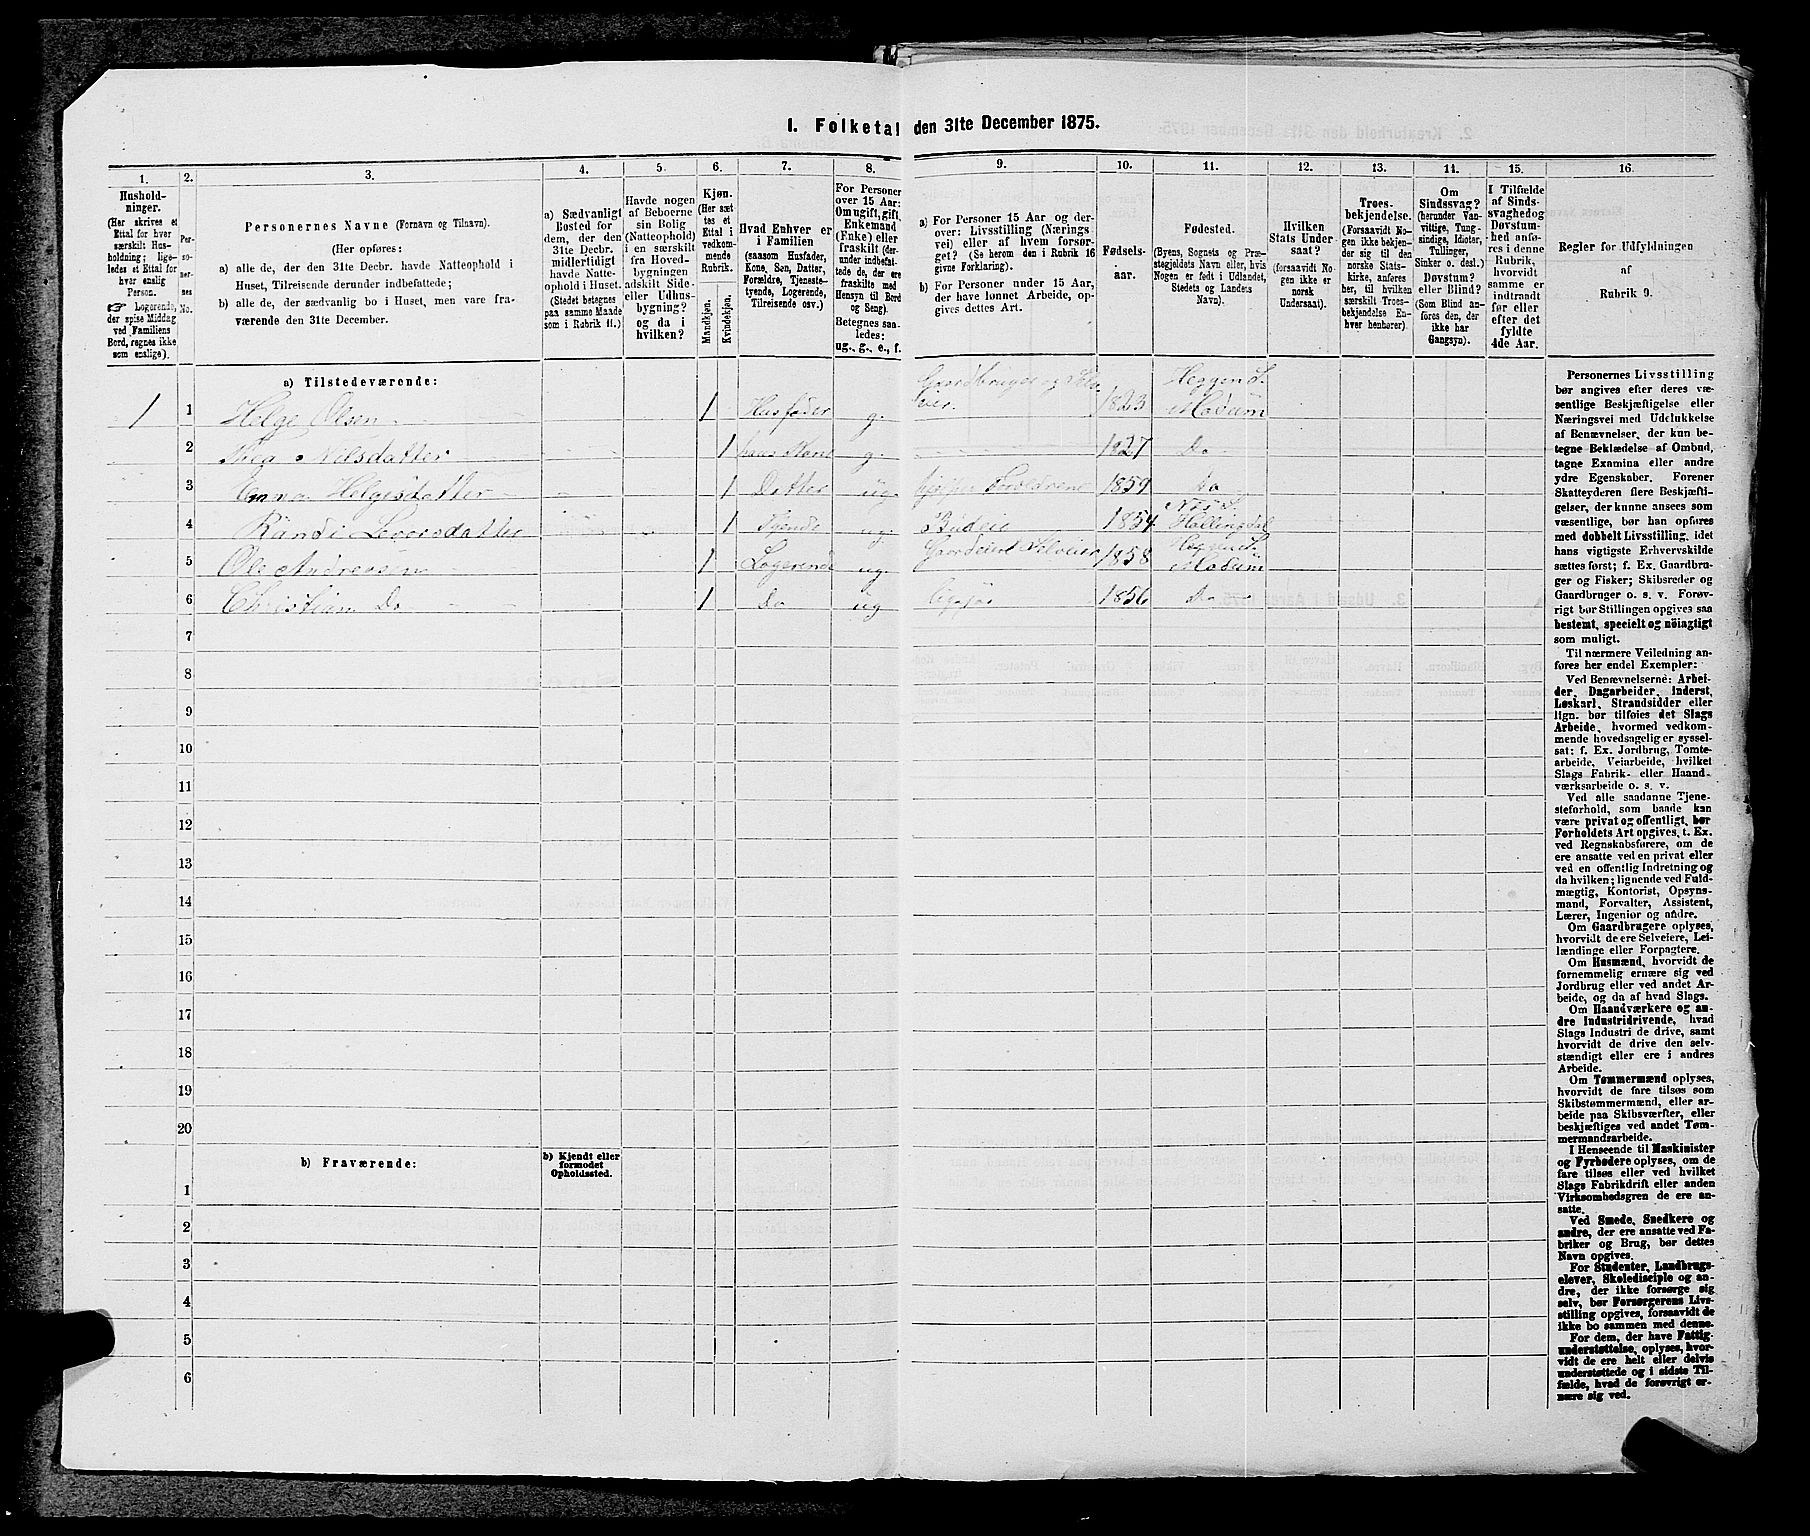 I. Folketal den 31te December 1875.
1.
Hushold-
ninger.
(Her skrives et
Ettal for hver
særskilt Hus-
holdning; lige-
ledes et Ettal for
hver enslig
Person.
☞ Logerende,
der spise Middag
ved Familiens
Bord, regnes ikke
som enslige).
2.
Per-
so-
ner-
nes
No.
3.
Personernes Navne (Fornavn og Tilnavn).
(Her opføres:
a) alle de, der den 31te Decbr. havde Natteophold i
Huset, Tilreisende derunder indbefattede;
b) alle de, der sædvanlig bo i Huset, men vare fra-
værende den 31te December.
4.
a) Sædvanligt
Bosted for
dem, der den
31te Decbr.
midlertidigt
havde Natte-
ophold i Huset.
(Stedet betegnes
paa samme Maade
som i Rubrik 11.)
5.
Havde nogen
af Beboerne
sin Bolig
(Natteophold)
i en særskilt
fra Hoved-
bygningen
adskilt Side-
eller Udhus-
bygning?
og da i
hvilken?
6.
Kjøn.
(Her sæt-
tes et
Ettal i
vedkom-
mende
Rubrik.
Mandkjøn.
Kvindekjøn.
7.
Hvad Enhver er
i Familien
(saasom Husfader,
Kone, Søn, Datter,
Forældre, Tjeneste-
tyende, Logerende,
Tilreisende osv.)
8.
For Personer
over 15 Aar:
Om ugift, gift,
Enkemand
(Enke) eller
fraskilt (der-
under indbefat-
tede de, der ere
fraskilte med
Hensyn til Bord
og Seng).
Betegnes saa-
ledes:
ug., g., e., f.
9.
a) For Personer 15 Aar og der-
over: Livsstilling (Nærings-
vei) eller af hvem forsør-
get? (Se herom den i Rubrik 16
givne Forklaring).
b) For Personer under 15 Aar,
der have lønnet Arbeide, op-
gives dettes Art.
10.
Fødsels-
aar.
11.
Fødested.
(Byens, Sognets og Præ-
stegjeldets Navn eller, hvis
Nogen er født i Udlandet,
Stedets og Landets
Navn).
12.
Hvilken
Stats Under-
saat?
(forsaavidt No-
gen ikke er
norsk
Undersaat).
13.
Troes-
bekjendelse.
(Forsaavidt No-
gen ikke bekjen-
der sig til den
norske Stats-
kirke, anføres
her, til hvilken
særskilt Troes-
bekjendelse En-
hver henhører).
14.
Om
Sindssvag?
(herunder Van-
vittige, Tung-
sindige, Idioter,
Tullinger,
Sinker o. desl.)
Døvstum?
eller Blind?
(Som Blind an-
føres den, der
ikke har
Gangsyn).
15.
I Tilfælde
af Sinds-
svaghed og
Døvstum-
hed anfø-
res i denne
Rubrik,
hvorvidt
samme er
indtraadt
før eller
efter det
fyldte
4de Aar.
16.
Regler for Udfyldningen
af
Rubrik 9.
a) Tilstedeværende:
1 1 Helge Olsen 1 Husfader g. Gaardbruger og Selv-
eier. 1823 Heggen S.
Modum
2 Thea Nilsdatter 1 hans Kone g. 1827 Do
3 Emma Helgesdatter 1 Datter ug. hjelper Forældrene 1859 Do
4 Randi 1 Tyende ug. Budeie 1854 Næs S.
Hallingdal
5 Ole Andreasen 1 Logerende ug. Selveier 1858 Heggen S.
Modum
6 Christian Do 1 Do ug 1856 Do
7
8
9
10
11
12
13
14
15
16
17
18
19
20
b) Fraværende:
b) Kjendt eller
formodet
Opholdssted.
1
2
3
4
5
6
Personernes Livsstilling
bør angives efter deres væ-
sentlige Beskjæftigelse eller
Næringsvei med Udelukkelse
af Benævnelser, der kun be-
tegne Beklædelse af Ombud,
tagne Examina eller andre
ydre Egenskaber. Forener
Skatteyderen flere Beskjæfti-
gelser, der kunne ansees som
væsentlige, bør han opføres
med dobbelt Livsstilling, idet
hans vigtigste Erhvervskilde
sættes først; f. Ex. Gaardbru-
ger og Fisker; Skibsreder og
Gaardbruger o. s. v. Forøv-
rigt bør Stillingen opgives saa
bestemt, specielt og nöiagtigt
som muligt.
Til nærmere Veiledning an-
føres her endel Exempler:
Ved Benævnelserne: Arbei-
der, Dagarbeider, Inderst,
Løskarl, Strandsidder eller
lign. bør tilføies det Slags
Arbeide, hvormed vedkom-
mende hovedsagelig er syssel-
sat; f. Ex. Jordbrug, Tomte-
arbeide, Veiarbeide, hvilket
Slags Fabrik- eller Haand-
værksarbeide o. s. v.
Ved alle saadanne Tjene-
steforhold, som baade kan
være privat og offentligt, bør
Forholdets Art opgives, t. Ex.
ved Regnskabsførere, om de
ere ansatte ved en privat eller
ved en offentlig Indretning og
da hvilken; lignende ved Fuld-
mægtig, Kontorist, Opsyns-
mand, Forvalter, Assistent,
Lærer, Ingeniør og andre.
Om Gaardbrugere oplyses,
hvorvidt de ere Selveiere, Lei-
lændinge eller Forpagtere.
Om Husmænd, hvorvidt de
fornemmelig ernære sig ved
Jordbrug eller ved andet Ar-
beide, og da af hvad Slags.
Om Haandværkere og an-
dre Industridrivende, hvad
Slags Industri de drive, samt
hvorvidt de drive den selv-
stændigt eller ere i andres
Arbeide.
Om Tømmermænd oplyses,
hvorvidt de fare tilsøs som
Skibstømmermænd, eller ar-
beide paa Skibsværfter, eller
beskjæftiges ved andet Tøm-
mermandsarbeide.
I Henseende til Maskinister
og Fyrbødere oplyses, om de
fare tilsøs eller ved hvilket
Slags Fabrikdrift eller anden
Virksomhedsgren de ere an-
satte.
Ved Smede, Snedkere og
andre, der ere ansatte ved Fa-
briker og Brug, bør dettes
Navn opgives.
For Studenter, Landbrugs-
elever, Skoledisciple og an-
dre, der ikke forsørge sig
selv, bør Forsørgerens Livs-
stilling opgives, forsaavidt de
ikke bo sammen med denne.
For dem, der have Fattig-
understøttelse, oplyses, hvor-
vidt de ere helt eller delvis
understøttede og i sidste Til-
fælde, hvad de forøvrigt er-
nære sig ved.